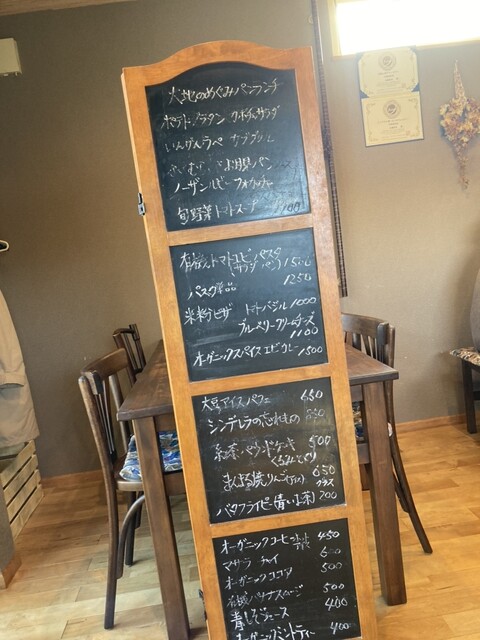 大地のめぐみパンランチ
ポテトグラタン カボチャサラダ
いんげんラペ
パン
ノーザンルビーフォカッチャ
旬野菜トマトスープ
有機トマトエビパスタ
(サラダ パン) 1500
パスタ単品 1250
米粉ピザ トマトバジル 1000
ブルーベリークリームチーズ
1100
オーガニックスパイスエビカレー 1500
大豆アイスパフェ 650
シンデレラの忘れもの
紅茶・パウンドケーキ 500
くるみ
焼りんご(アイス) 650
プラス
バタフライピー(青いお茶) 200
オーガニックコーヒー 450
マサラ チャイ
オーガニックココア 500
有機バナナスムージー 500
青しそジュース 400
オーガニックミントティー 400